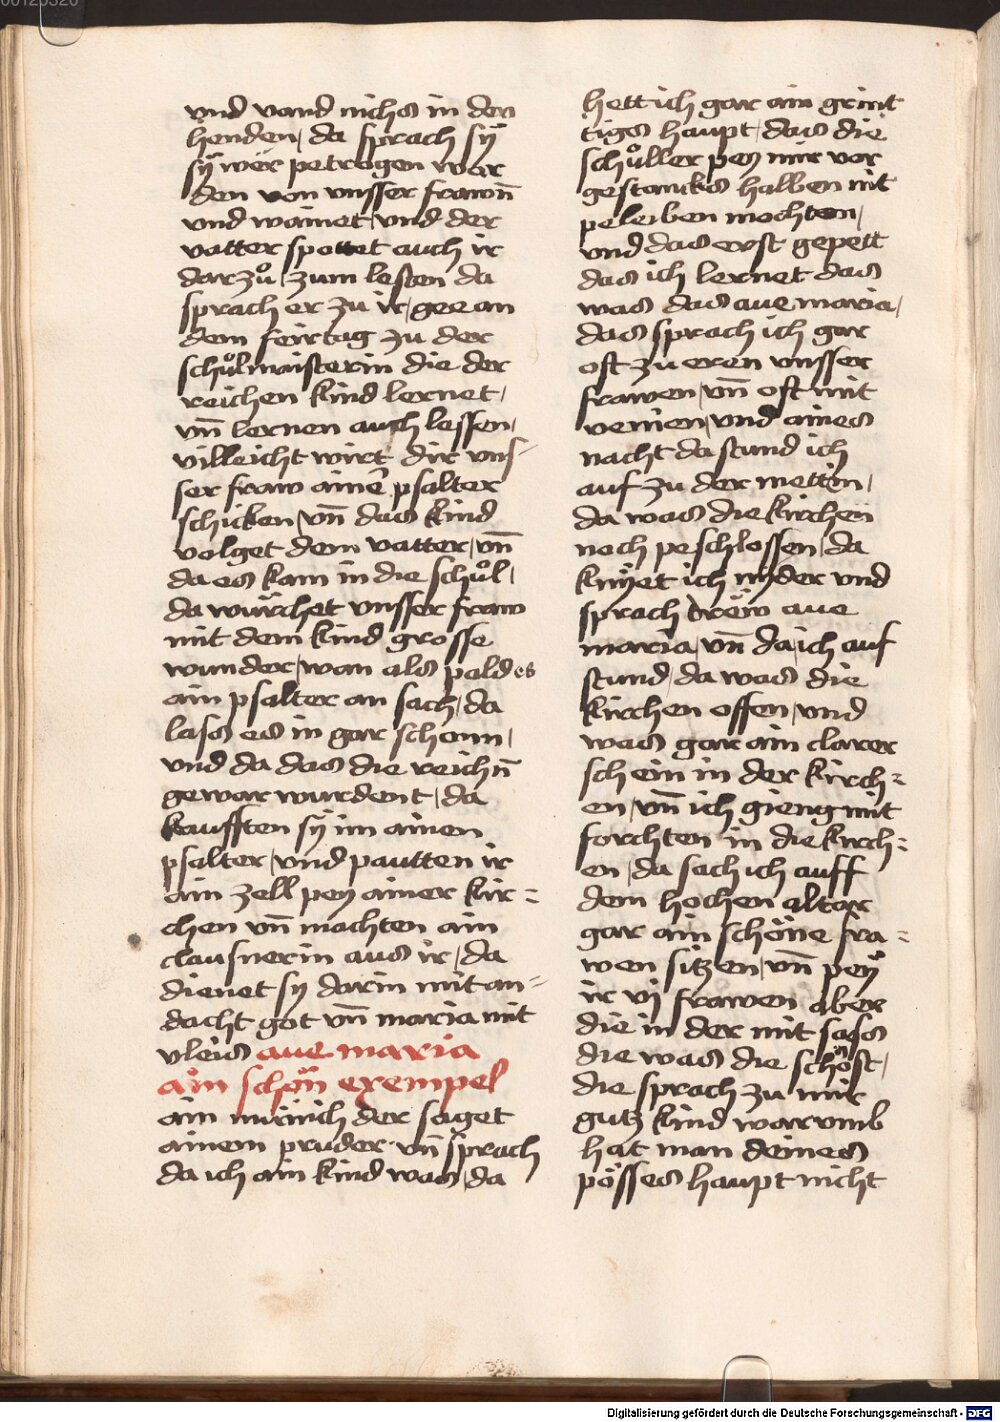 vnd vand nichs in den
henden, da sprach sÿ
sÿ wer petrogen wor
den von vnsser frawn̄
vnd wainet, vnd der
vatter spottet auch ir
dar zů, zum lesten da
sprach er zu ir, gee an
dem feirtag zu der
schůlmaisterin die der
reichen kind lernet,
vn̄ lernen auch lessen,
villeicht wirt dir vns-
ser fraw aine̅ psalter
schicken, vn̄ das kind
volget dem vatter, vn̄
da es kam in die schůl,
da würchet vnsser fraw
mit dem kind grosse
wunder, wan als pald es
ain psalter an sach, da
lass es in gar schonn,
vnd da das die reichn̄
gewar wurdent, da
kaufften sÿ im ainen
psalter, vnd pautten ir
ain zell pey ainer kir=
chen vn̄ machten ain
clausnerin aus ir, da
dienet sy darin mit an-
dacht got vn̄ maria mit
vleis aue maria
ain schön exempel
ain münich der saget
ainem pruder vn̄ sprach
da ich ain kind was, da
hett ich gar ain grint
tigs haupt, das die
schůller pey mir vor
gestancks halben nit
peleiben mochten,
vnd das erst gepett
das ich lernet das
was das aue maria,
das sprach ich gar
oft zu eren vnsser
frawen, vn̄ oft mit
venien, vnd aines
nacht da stund ich
auf zu der mettin,
da was die kirchen
noch peschlossen, da
knÿet ich nyder vnd
sprach drëw aue
maria, vn̄ da ich auf
stund, da was die
kirchen offen, vnd
was gar ain clarer
schein in der kirch=
en, vn̄ ich gieng mit
forchten in die kirch=
en, da sach ich auff
dem hochen altar
gar ain schöne fra=
wen sitzen, vn̄ peÿ
ir vj frawen aber
die in der mit sass
die was die schönst,
die sprach zu mir
gutz kind warumb
hat man deines
pösses haupt nicht
Digitalisierung gefördert durch die Deutsche Forschungsgemeinschaft - DFG